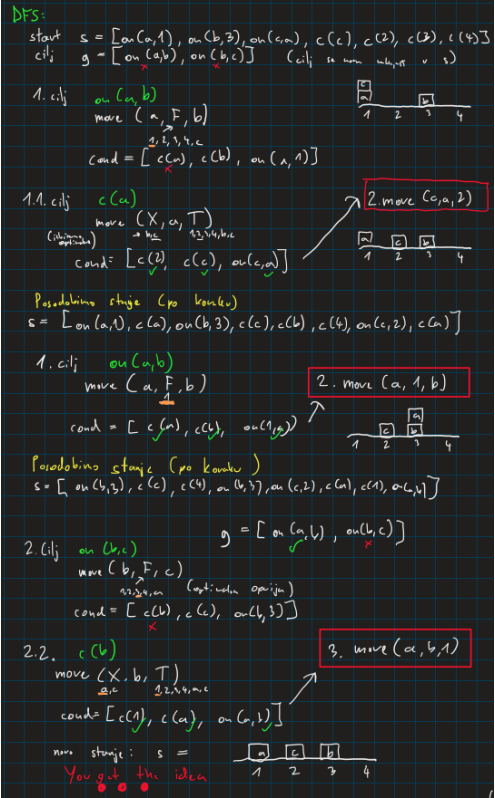 DFS:
start s = [on(a,1), on(b,3), on(c,a), c(c), c(2), c(3), c(4)]
cilj g = [on(a,b), on(b,c)] (cilj se nam v s)
1. cilj on(a,b)
move (a, F, b)
1,2,3,4,c
cond = [c(a), c(b), on(a,1)]
c
a b
1 2 3 4
1.1. cilj c(a)
move (X, a, T)
b,c 1,2,3,4,b,c
cond = [c(2), c(c), on(c,a)]
2. move (c,a,2)
a c b
1 2 3 4
Posodobimo stanje (po koraku)
s = [on(a,1), c(a), on(b,3), c(c), c(b), c(4), on(c,2), c(a)]
1. cilj on(a,b)
move (a, F, b)
1
cond = [c(a), c(b), on(1,a)]
2. move (a, 1, b)
a
c b
1 2 3 4
Posodobimo stanje (po koraku)
s = [on(b,3), c(c), c(4), on(b,3), on(c,2), c(a), c(1), on(a,b)]
g = [on(a,b), on(b,c)]
2. Cilj on(b,c)
move (b, F, c)
1,2,3,4,a (optimalna opcija)
cond = [c(b), c(c), on(b,3)]
2.2. c(b)
move (X, b, T)
a,c 1,2,3,4,a,c
cond = [c(1), c(a), on(a,b)]
3. move (a,b,1)
novo stanje: s =
a c b
1 2 3 4
You got the idea